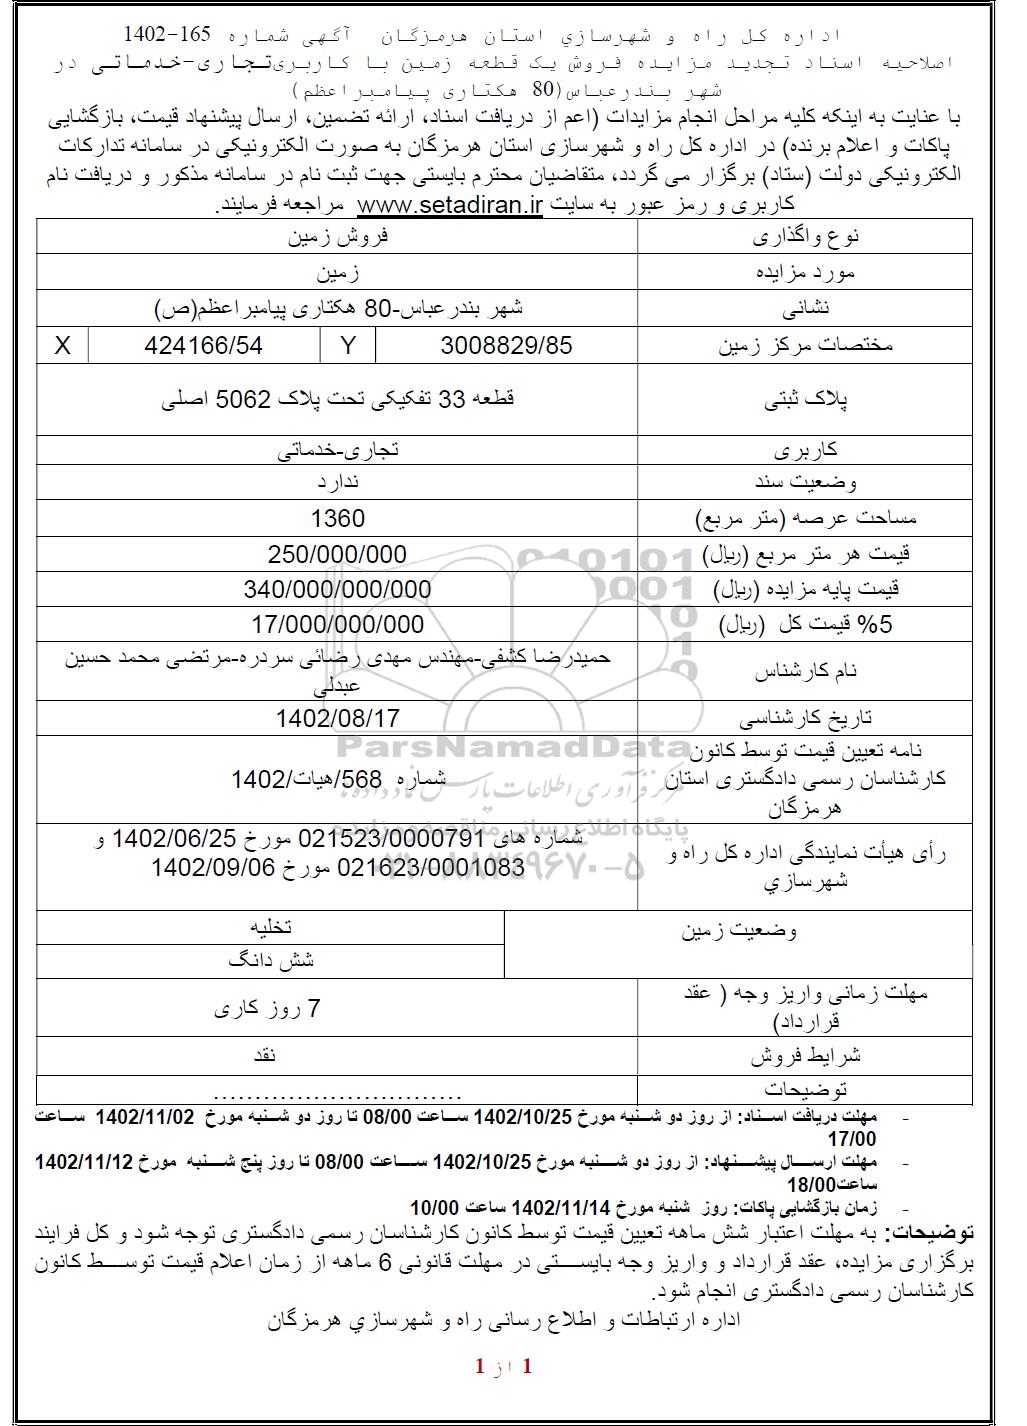 اداره کل راه و شهرسازي استان هرمزگان آگهی شماره 165-1402
اصلاحیه اسناد تجدید مزایده فروش یک قطعه زمین با کاربری تجاری-خدماتی در
شهر بندرعباس(80 هکتاری پیامبراعظم)
با عنایت به اینکه کلیه مراحل انجام مزایدات (اعم از دریافت اسناد، ارائه تضمین، ارسال پیشنهاد قیمت، بازگشایی
پاکات و اعلام برنده) در اداره کل راه و شهرسازی استان هرمزگان به صورت الکترونیکی در سامانه تدارکات
الکترونیکی دولت (ستاد) برگزار می گردد، متقاضیان محترم بایستی جهت ثبت نام در سامانه مذکور و دریافت نام
کاربری و رمز عبور به سایت www.setadiran.ir مراجعه فرمایند.
نوع واگذاری فروش زمین
مورد مزایده زمین
نشانی شهر بندرعباس-80 هکتاری پیامبراعظم(ص)
مختصات مرکز زمین 3008829/85 Y 424166/54 X
پلاک ثبتی قطعه 33 تفکیکی تحت پلاک 5062 اصلی
کاربری تجاری-خدماتی
وضعیت سند ندارد
مساحت عرصه (متر مربع) 1360
قیمت هر متر مربع (ریال) 250/000/000
قیمت پایه مزایده (ریال) 340/000/000/000
5% قیمت کل (ریال) 17/000/000/000
نام کارشناس حمیدرضا کشفی-مهندس مهدی رضائی سردره-مرتضی محمد حسین
عبدلی
تاریخ کارشناسی 1402/08/17
نامه تعیین قیمت توسط کانون
کارشناسان رسمی دادگستری استان
هرمزگان
شماره 568/هیات/1402
رأی هیأت نمایندگی اداره کل راه و
شهرسازي
شماره های 021523/0000791 مورخ 1402/06/25 و
021623/0001083 مورخ 1402/09/06
وضعیت زمین تخلیه
شش دانگ
مهلت زمانی واریز وجه ( عقد
قرارداد)
7 روز کاری
شرایط فروش نقد
توضیحات ..............................
- مهلت دریافت اسناد: از روز دو شنبه مورخ 1402/10/25 ساعت 08/00 تا روز دو شنبه مورخ 1402/11/02 ساعت
17/00
- مهلت ارسال پیشنهاد: از روز دو شنبه مورخ 1402/10/25 ساعت 08/00 تا روز پنج شنبه مورخ 1402/11/12
ساعت18/00
- زمان بازگشایی پاکات: روز شنبه مورخ 1402/11/14 ساعت 10/00
توضیحات: به مهلت اعتبار شش ماهه تعیین قیمت توسط کانون کارشناسان رسمی دادگستری توجه شود و کل فرایند
برگزاری مزایده، عقد قرارداد و واریز وجه بایستی در مهلت قانونی 6 ماهه از زمان اعلام قیمت توسط کانون
کارشناسان رسمی دادگستری انجام شود.
اداره ارتباطات و اطلاع رسانی راه و شهرسازي هرمزگان
1 از 1
ParsNamadData
مرکز فرآوری اطلاعات پارس نماد داده ها
پایگاه اطلاع رسانی مناقصه و مزایده